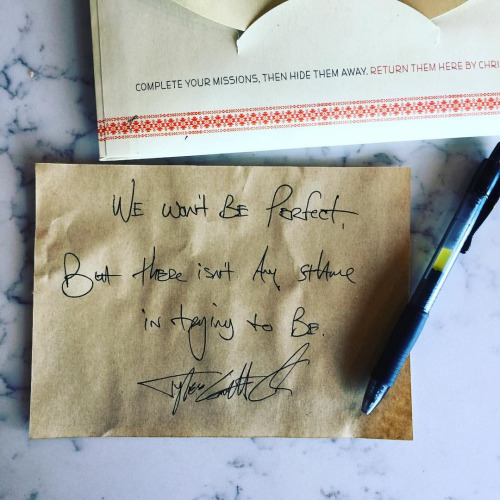 COMPLETE YOUR MISSIONS, THEN HIDE THEM AWAY. RETURN THEM HERE BY CHRI
WE WON'T BE PERFECT,
BUT THERE ISN'T ANY SHAME
IN TRYING TO BE.